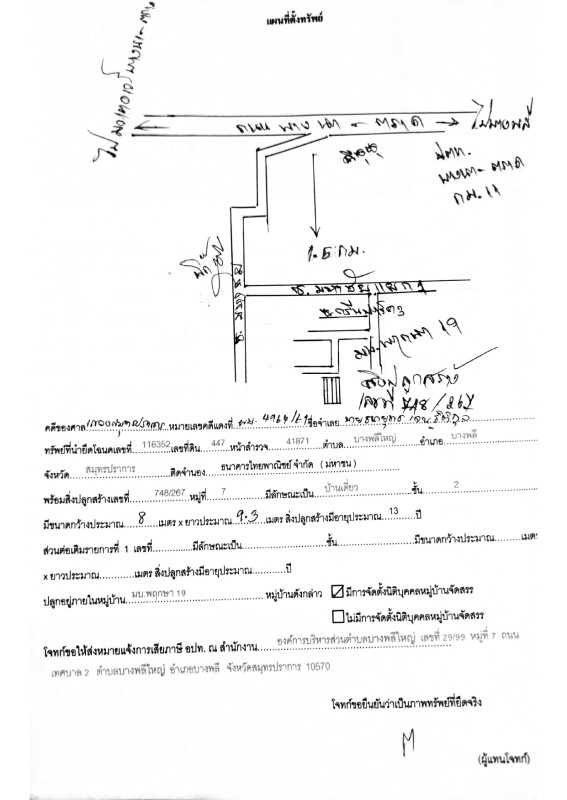 แผนที่ตั้งทรัพย์
ถนน บางนา - ตราด
ไปบางพลี
บางนา - ตราด
กม. 11
1.5 กม.
มบ. พฤกษา 19
สิ่งปลูกสร้าง
เลขที่ 748/267
คดีของศาล หมายเลขคดีแดงที่ ชื่อจำเลย
ทรัพย์ที่นำยึดโฉนดเลขที่ 116352 เลขที่ดิน 447 หน้าสำรวจ 41871 ตำบล บางพลีใหญ่ อำเภอ บางพลี
จังหวัด สมุทรปราการ ติดจำนอง ธนาคารไทยพาณิชย์ จำกัด (มหาชน)
พร้อมสิ่งปลูกสร้างเลขที่ 748/267 หมู่ที่ 7 มีลักษณะเป็น บ้านเดี่ยว ชั้น 2
มีขนาดกว้างประมาณ 8 เมตร x ยาวประมาณ 9.3 เมตร สิ่งปลูกสร้างมีอายุประมาณ 13 ปี
ส่วนต่อเติมรายการที่ 1 เลขที่ มีลักษณะเป็น ชั้น มีขนาดกว้างประมาณ เมตร
x ยาวประมาณ เมตร สิ่งปลูกสร้างมีอายุประมาณ ปี
ปลูกอยู่ภายในหมู่บ้าน มบ.พฤกษา 19 หมู่บ้านดังกล่าว ☑ มีการจัดตั้งนิติบุคคลหมู่บ้านจัดสรร
☐ ไม่มีการจัดตั้งนิติบุคคลหมู่บ้านจัดสรร
โจทก์ขอให้ส่งหมายแจ้งการเสียภาษี อปท. ณ สำนักงาน องค์การบริหารส่วนตำบลบางพลีใหญ่ เลขที่ 29/99 หมู่ที่ 7 ถนน
เทศบาล 2 ตำบลบางพลีใหญ่ อำเภอบางพลี จังหวัดสมุทรปราการ 10570
โจทก์ขอยืนยันว่าเป็นภาพทรัพย์ที่ยึดจริง
(ผู้แทนโจทก์)